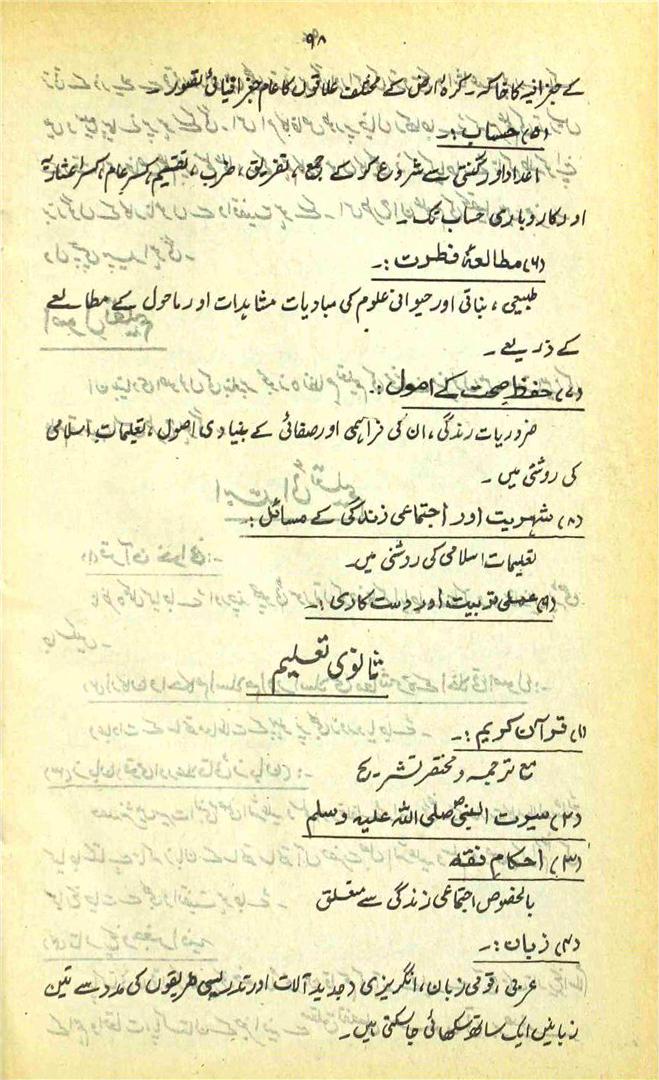 ۹۸
کے جغرافیہ کا خاکہ۔ کرہ ارض کے مختلف علاقوں کا عام جغرافیائی تصور۔
(۵) حساب :۔
اعداد اور گنتی سے شروع کر کے جمع ، تفریق ، ضرب ، تقسیم، کسرِ عام، کسر اعشاریہ
اور کاروباری حساب تک۔
(۶) مطالعۂ فطرت :۔
طبیعی ، نباتی اور حیوانی علوم کی مبادیات مشاہدات اور ماحول کے مطالعے
کے ذریعے ۔
(۷) حفظِ صحت کے اصول :۔
ضروریات زندگی ، ان کی فراہمی اور صفائی کے بنیادی اصول ، تعلیمات اسلامی
کی روشنی میں ۔
(۸) شہریت اور اجتماعی زندگی کے مسائل :۔
تعلیمات اسلامی کی روشنی میں۔
(۹) عملی تربیت اور دست کاری :۔
ثانوی تعلیم
(۱) قرآن کریم :۔
مع ترجمہ و مختصر تشریح
(۲) سیرت النبی صلی اللہ علیہ وسلم
(۳) احکامِ فقہ
بالخصوص اجتماعی زندگی سے متعلق
(۴) زبان :۔
عربی ، قومی زبان، انگریزی (جدید آلات اور تدریسی طریقوں کی مدد سے تین
زبانیں ایک ساتھ سکھائی جا سکتی ہیں۔